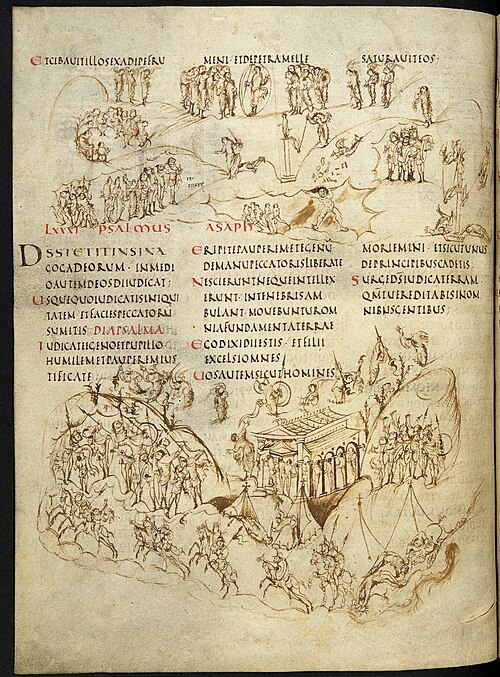 ETCIBAVITILLOSEXADIPEFRU MENI·ETDEPETRAMELLE SATURAUITEOS·
LXXXI PSALMUS ASAPH
DSSTETITINSINA
GOGADEORUM·INMEDI
OAUTEMDEOSDIIUDICAT;
USQUEQUOIUDICATISINIQUI
TATEM ETFACIESPECCATORU
SUMITIS DIAPSALMA
IUDICATEEGENOETPUPILLO·
HUMILEMETPAUPEREMIUS
TIFICATE
ERIPITEPAUPEREMETEGENU
DEMANUPECCATORISLIBERATE
NESCIERUNTNEQUEINTELLEX
ERUNT·INTENEBRISAM
BULANT·MOUEBUNTUROM
NIAFUNDAMENTATERRAE
EGODIXIDIIESTIS·ETFILII
EXCELSIOMNES;
UOSAUTEMSICUTHOMINES
MORIEMINI·ETSICUTUNUS
DEPRINCIPIBUSCADETIS;
SURGEDSIUDICATERRAM
QMTUEREDITABISINOM
NIBUSGENTIBUS;